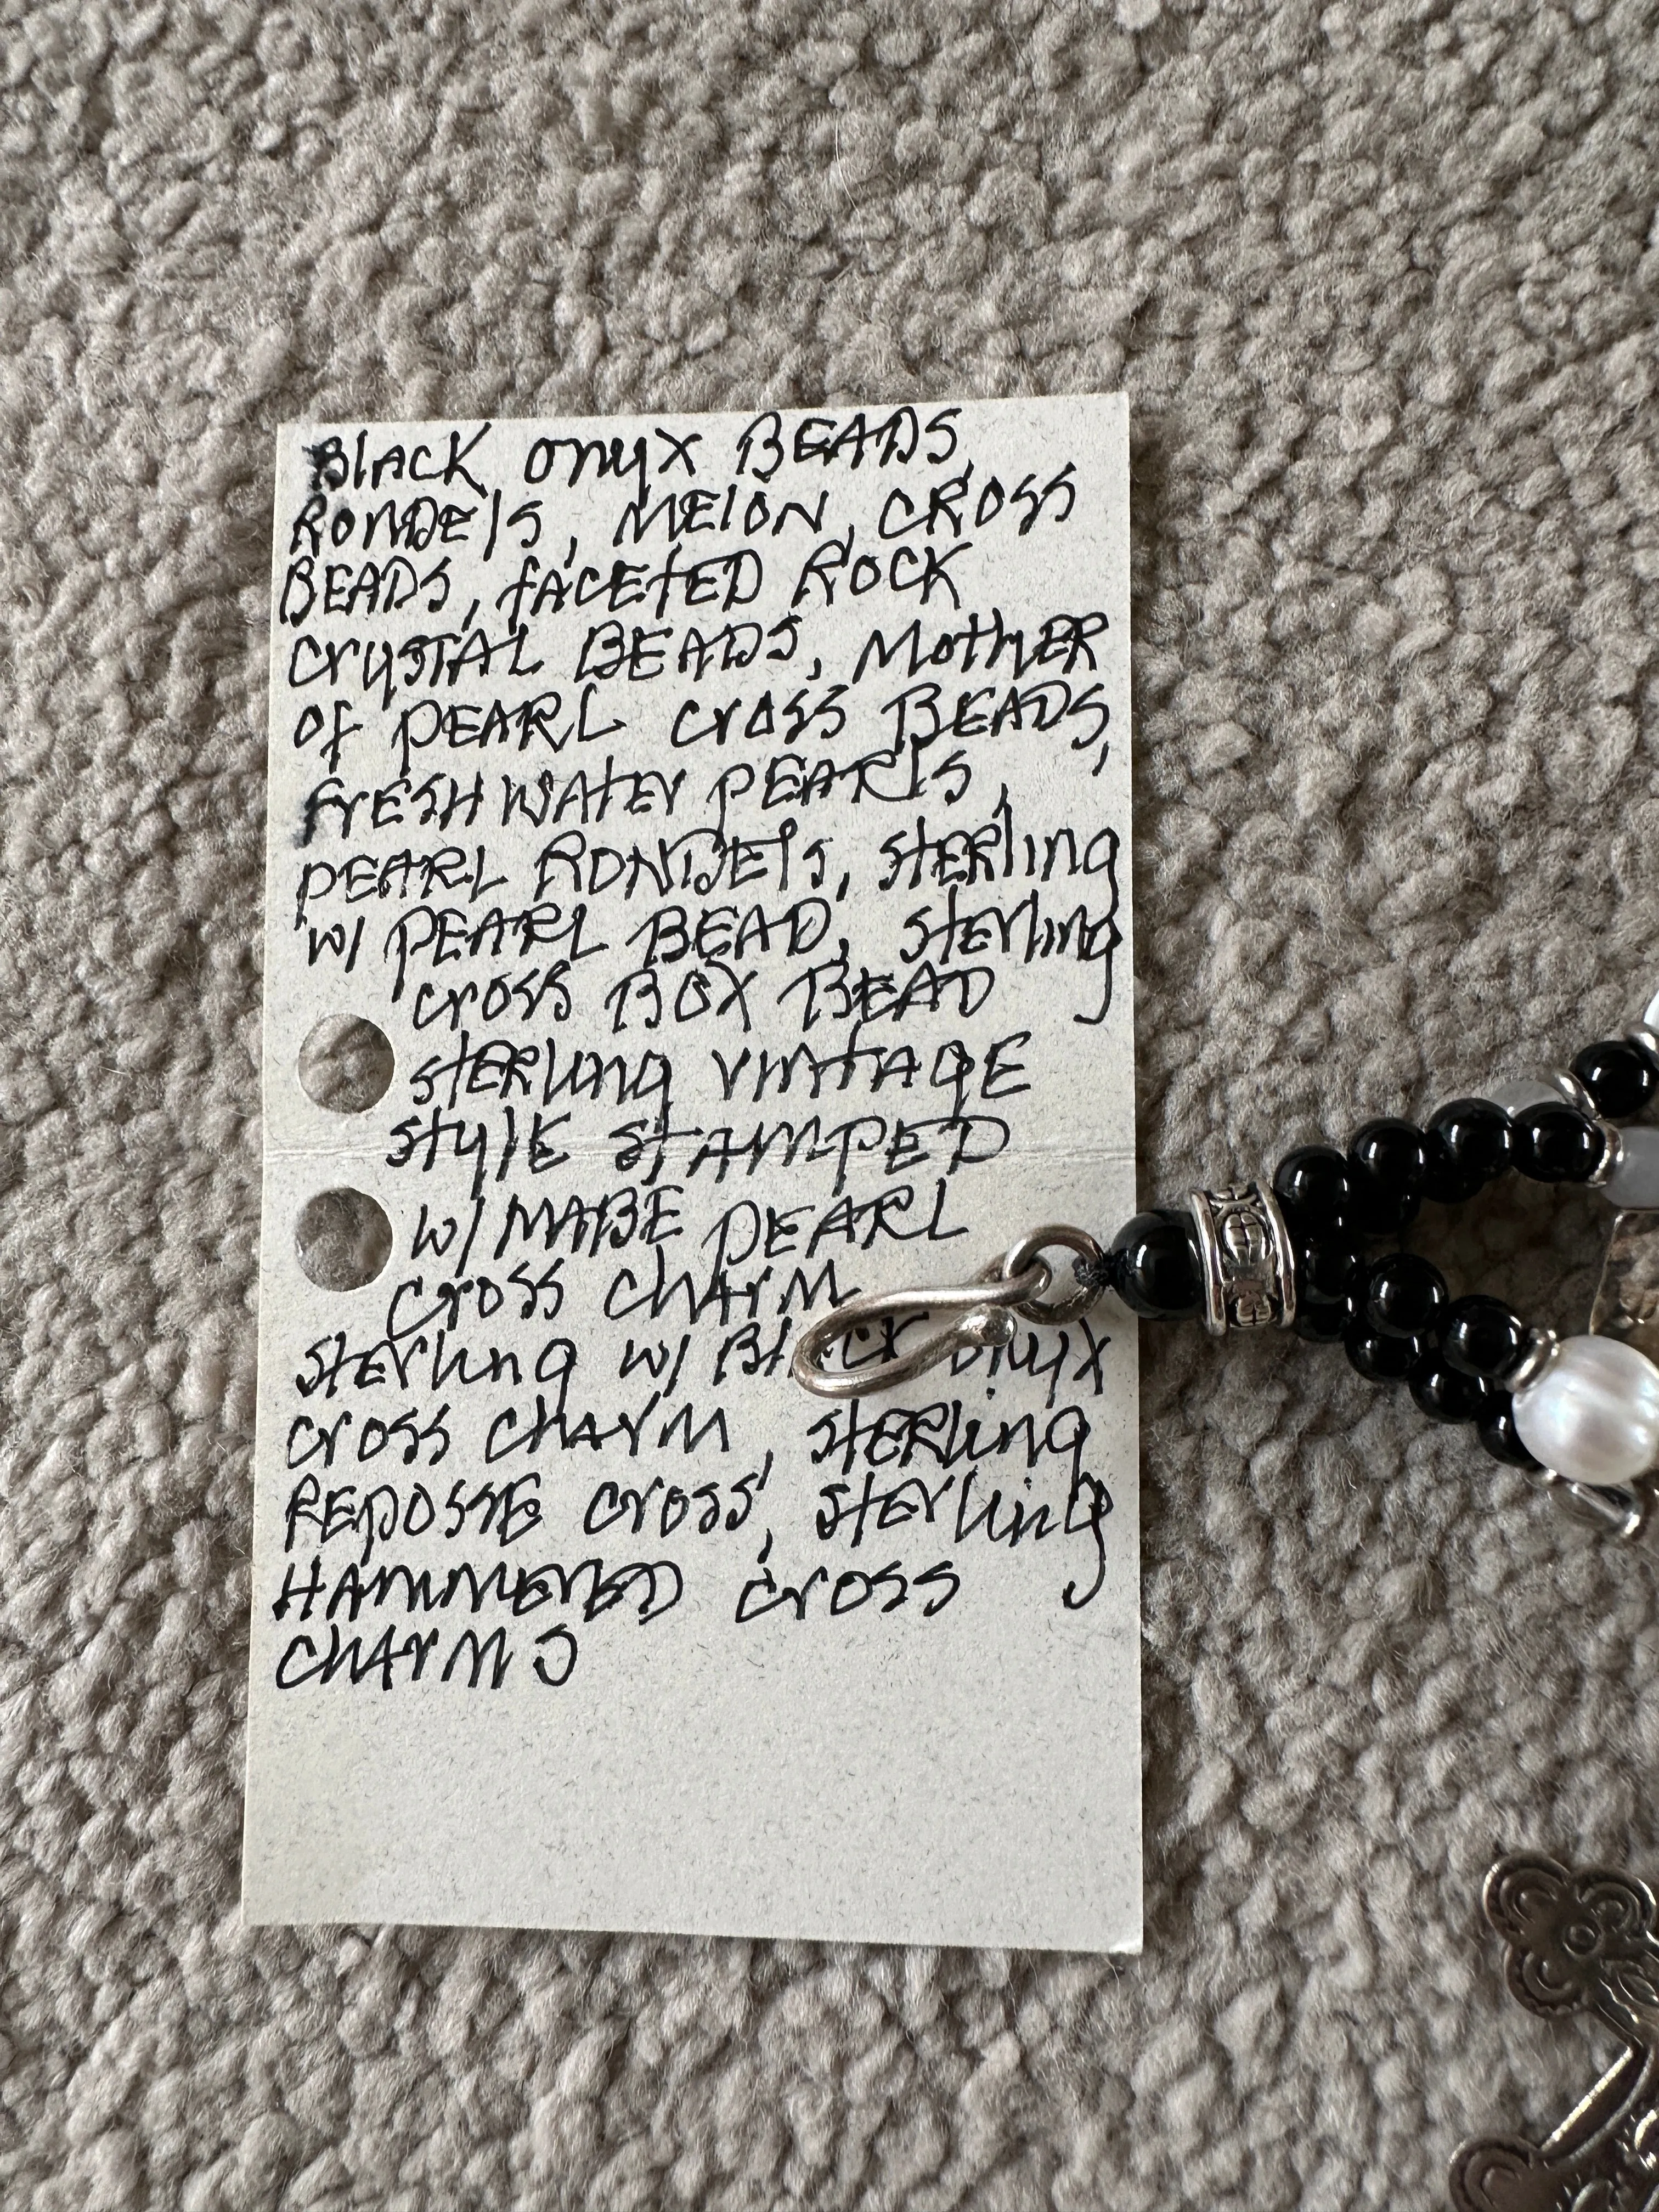 Black Onyx BEADS,
RONDElS, MElON, CROSS
BEADS, fACETED ROCK
CrySTAL BEADS, MotHER
Of PEARL Cross BEADS,
frESHWAtEr PEARlS,
PEARL RONDElS, StERling
W/ PEARL BEAD, StErling
Cross BOX BEAD
StERling VINtAGE
StylE StAMPED
W/ MABE PEARL
Cross CHArM
StErling W/ BlACK Onyx
Cross CHArM, StERling
REPOSSE Cross, StErling
HAMMERED Cross
CHArMS